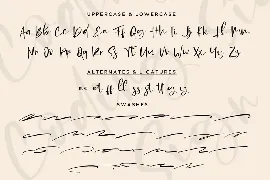 UPPERCASE & LOWERCASE
Aa Bb Cc Dd Ee Ff Gg Hh Ii Jj Kk Ll Mm
Nn Oo Pp Qq Rr Ss Tt Uu Vv Ww Xx Yy Zz
ALTERNATES & LIGATURES
SWASHES